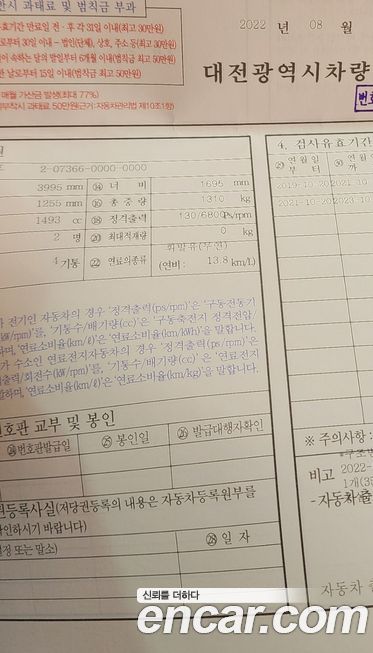 반시 과태료 및 범칙금 부과
효기간 만료일 전·후 각 31일 이내(최고 30만원)
로부터 30일 이내 - 법인(단체), 상호, 주소 등(최고 30만원)
이 속하는 달의 말일부터 6개월 이내(범칙금 최고 50만원)
한 날로부터 15일 이내(범칙금 50만원)
매월 가산금 발생(최대 77%)
부착시 과태료 50만원(근거:자동차관리법 제10조1항)
2022 년 08 월
대전광역시차량
번호
월
2-07366-0000-0000
3995 mm ⑭ 너 비 1695 mm
1255 mm ⑯ 총 중 량 1310 kg
1493 cc ⑱ 정격출력 130/6800 Ps/rpm
2 명 ⑳ 최대적재량 0 kg
4 기통 ㉒ 연료의종류 휘발유(무연)
(연비: 13.8 km/L)
4. 검사유효기간
㉙ 연월일부터 ㉚ 연월일까지
2019-10-20
2021-10-20
가 전기인 자동차의 경우 '정격출력(ps/rpm)'은 '구동전동기
(kW/rpm)'를, '기통수/배기량(cc)'은 '구동축전지 정격전압/
하며, '연료소비율(km/ℓ)'은 '연료소비율(km/kWh)'을 말합니다.
가 수소인 연료전지자동차의 경우 '정격출력(ps/rpm)'은
출력/회전수(kW/rpm)'를, '기통수/배기량(cc)'은 '연료전지
말하며, '연료소비율(km/ℓ)'은 '연료소비율(km/kg)'을 말합니다.
번호판 교부 및 봉인
㉔번호판발급일 ㉕ 봉인일 ㉖ 발급대행자확인
권등록사실(저당권등록의 내용은 자동차등록원부를
확인하시기 바랍니다)
설정 또는 말소) ㉘ 일 자
※ 주의사항 :
비고 2022-
- 자동차 출
자동차 출
신뢰를 더하다
encar.com